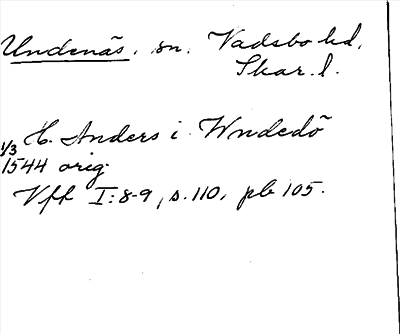 Undenäs, sn, Vadsbo hd,
Skar. l.
1/3 H. Anders i Wndedö
1544 orig.
Vfft I:8-9, s.110, pl. 105.